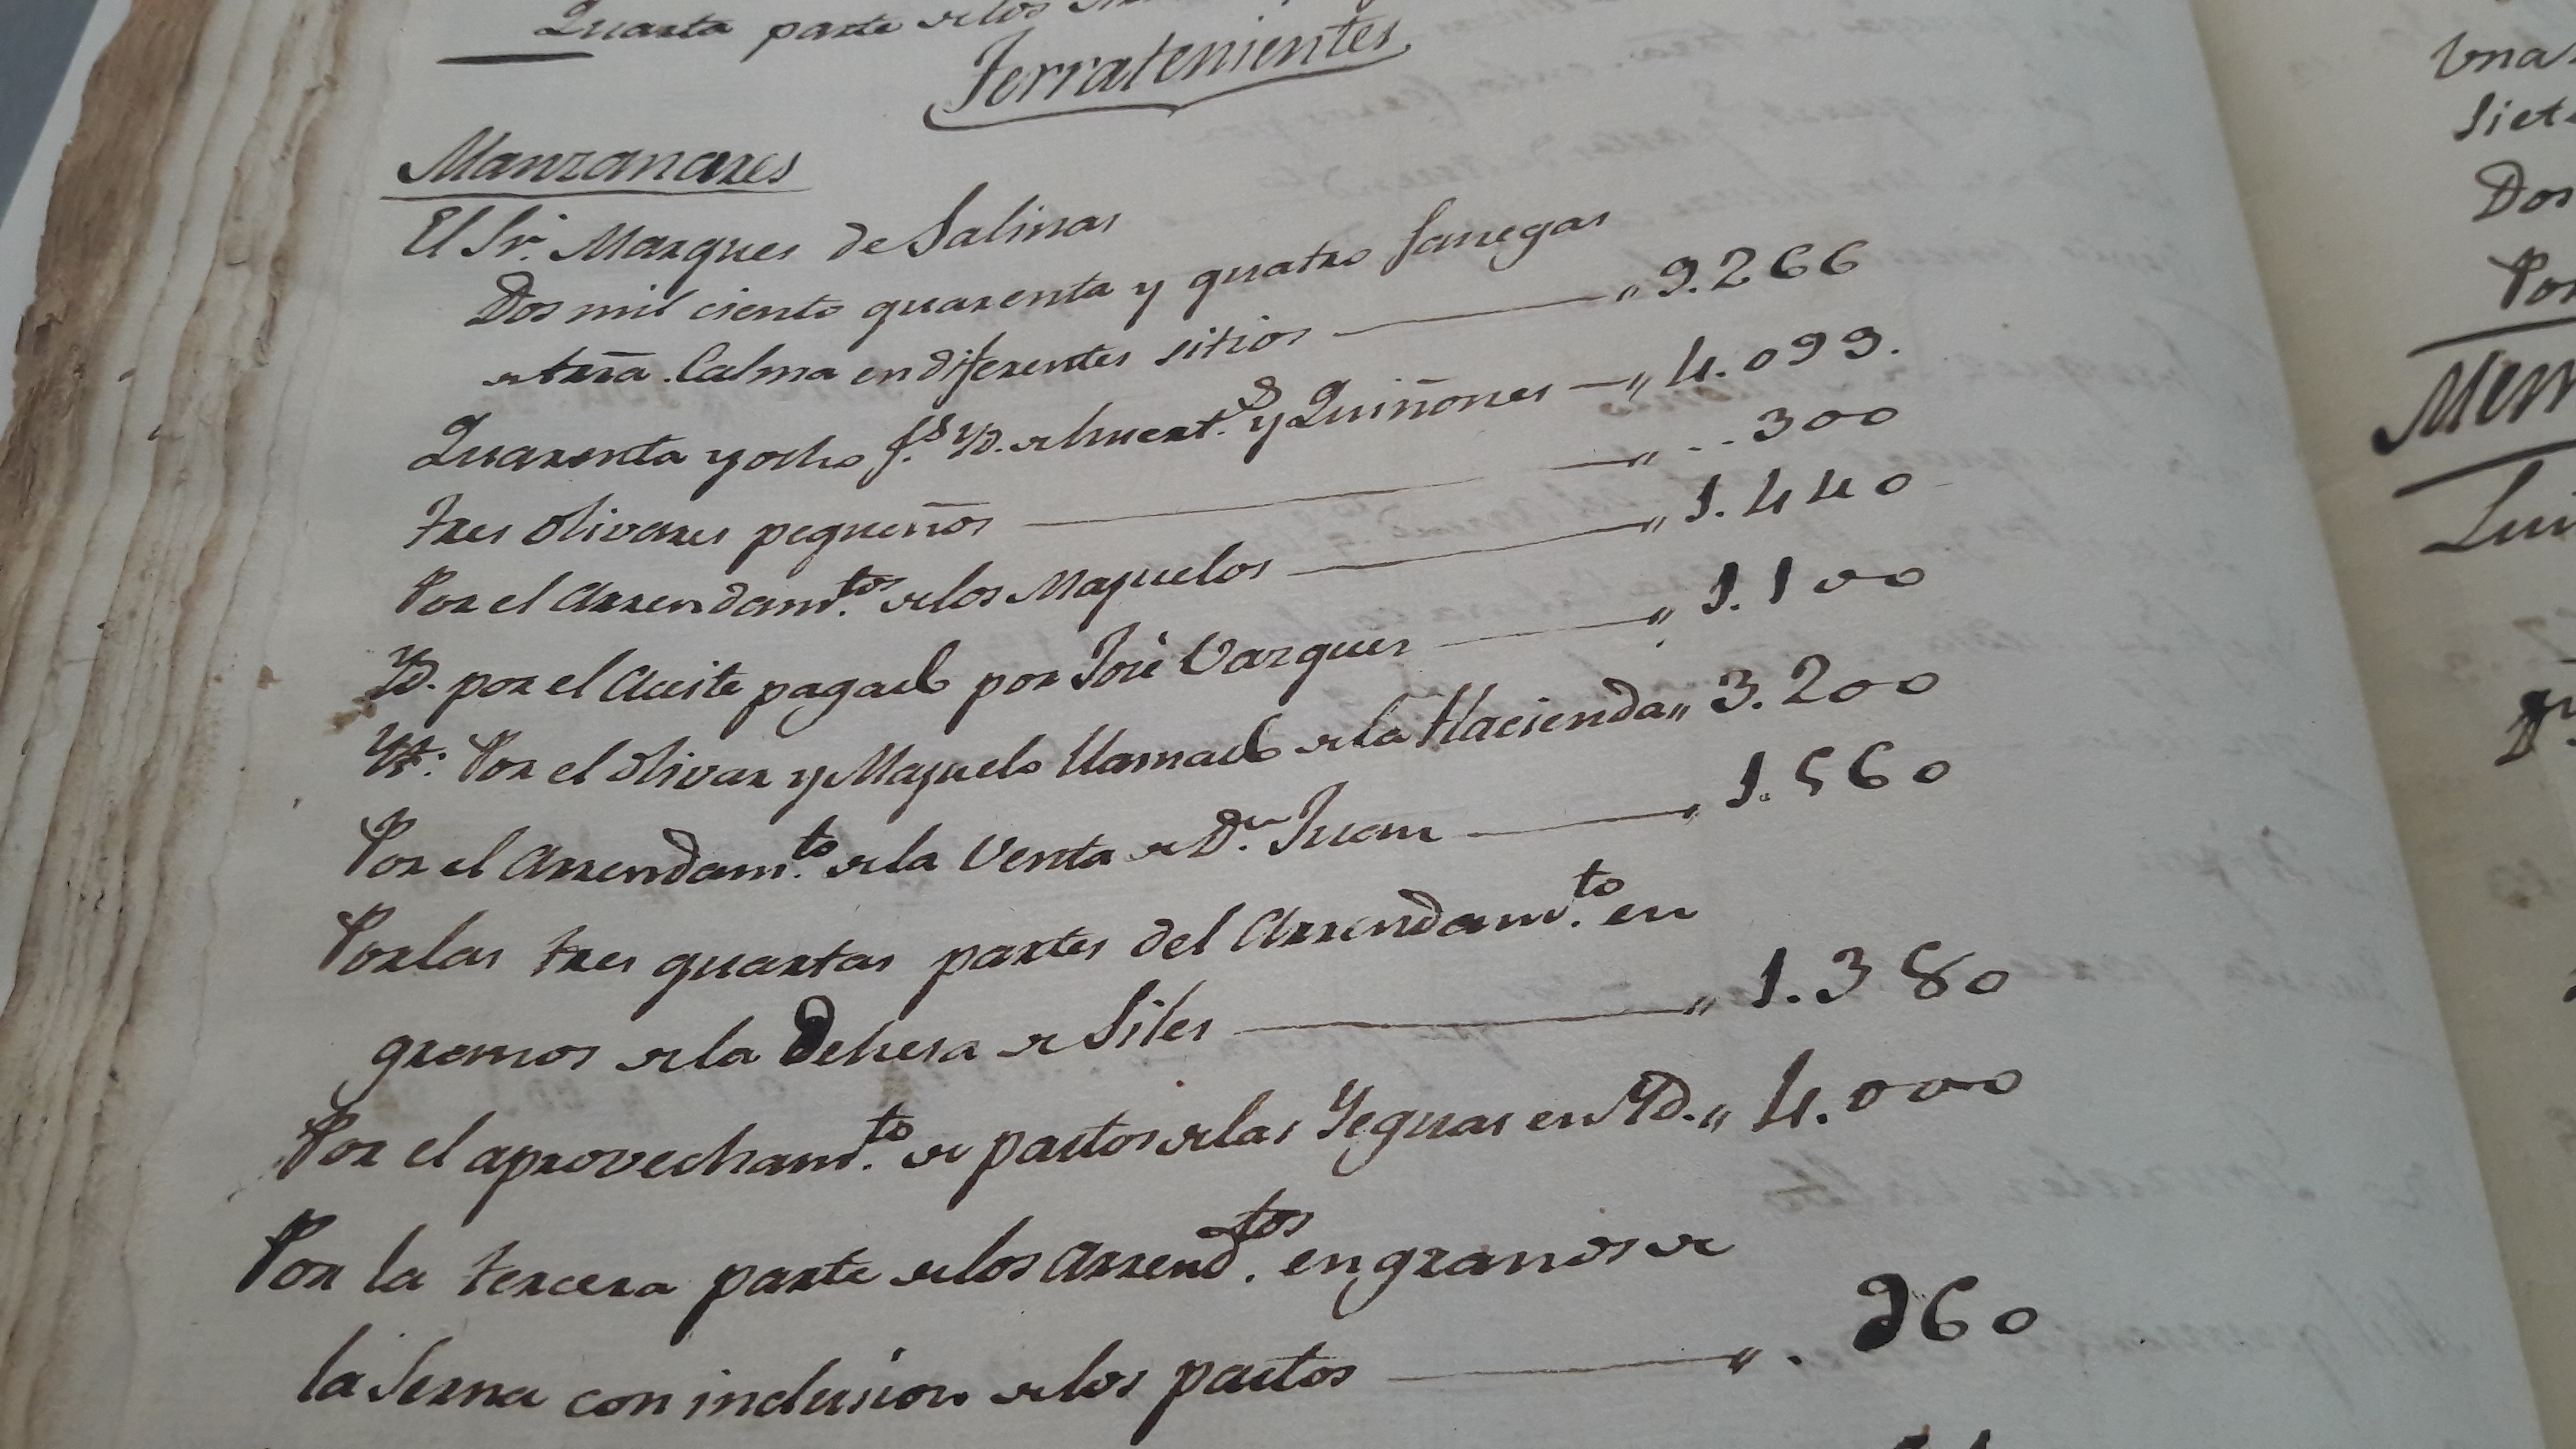 Quarta parte de los
Terratenientes
Manzanares
El Sr. Marques de Salinas
Dos mil ciento quarenta y quatro fanegas
de trrã. Calma en diferentes sitios —— " 9.266
Quarenta y ocho f.s Yd. de huert.s y Quiñones — " 4.099.
tres olivares pequeños —— " .. 300
Por el Arrendam.tos de los Majuelos —— " 1.440
Yd. por el Aceite pagado por José Vazquez —— " 1.100
Yt: Por el olivar y Majuelo llamado de la Hacienda " 3.200
Por el Arrendam.to de la Venta de Dn. Juan —— " 1.560
Por las tres quartas partes del Arrendam.to en
granos de la Dehesa de Siles —— " 1.380
Por el aprovecham.to de pastos de las Yeguas en Yd. " 4.000
Por la tercera parte de los Arrend.tos en granos de
la Serna con inclusion de los pastos —— " . 960
Una
Siete
Dos
Por